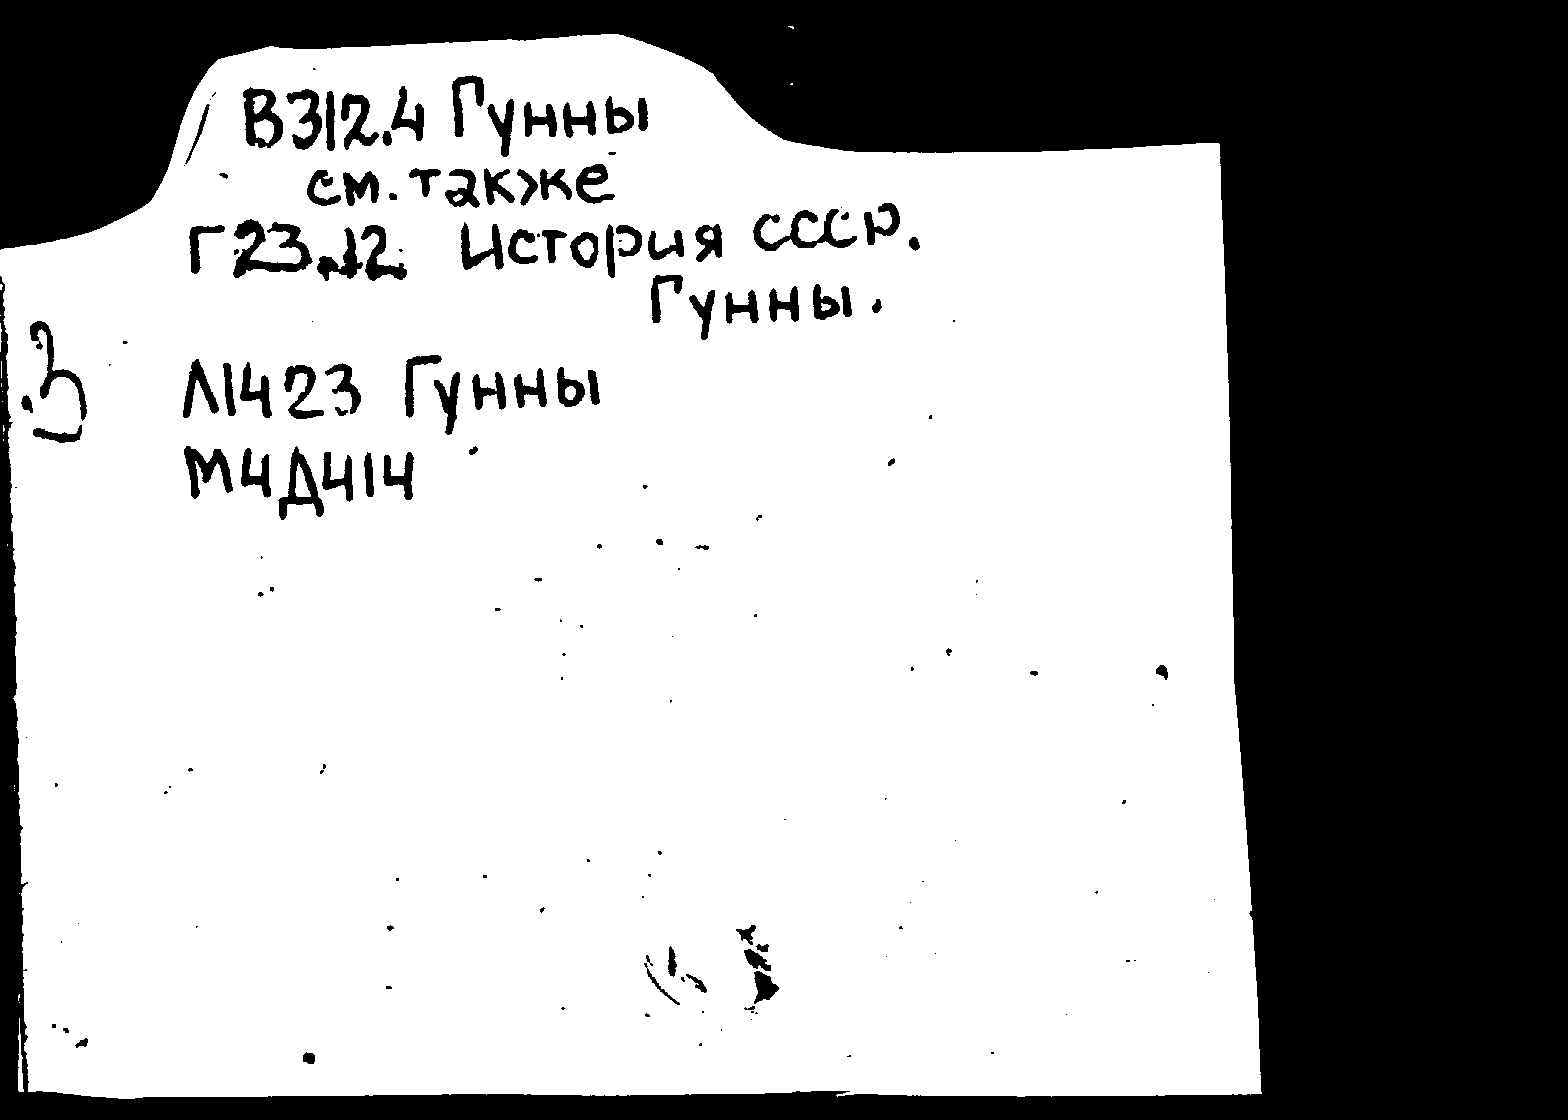 В312.4 Гунны
см. также
Г23.12. История СССР.
Гунны.
Л1423 Гунны
М4Д414